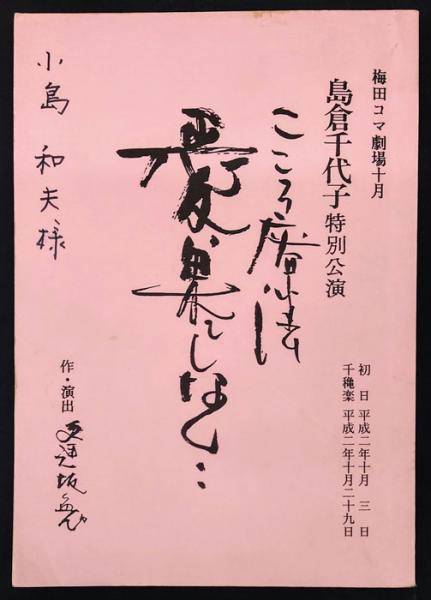 梅田コマ劇場十月
島倉千代子特別公演
初日 平成二年十月 三 日
千穐楽 平成二年十月二十九日
こころ
果てしなく…
作・演出 逢坂勉
小島 和夫様